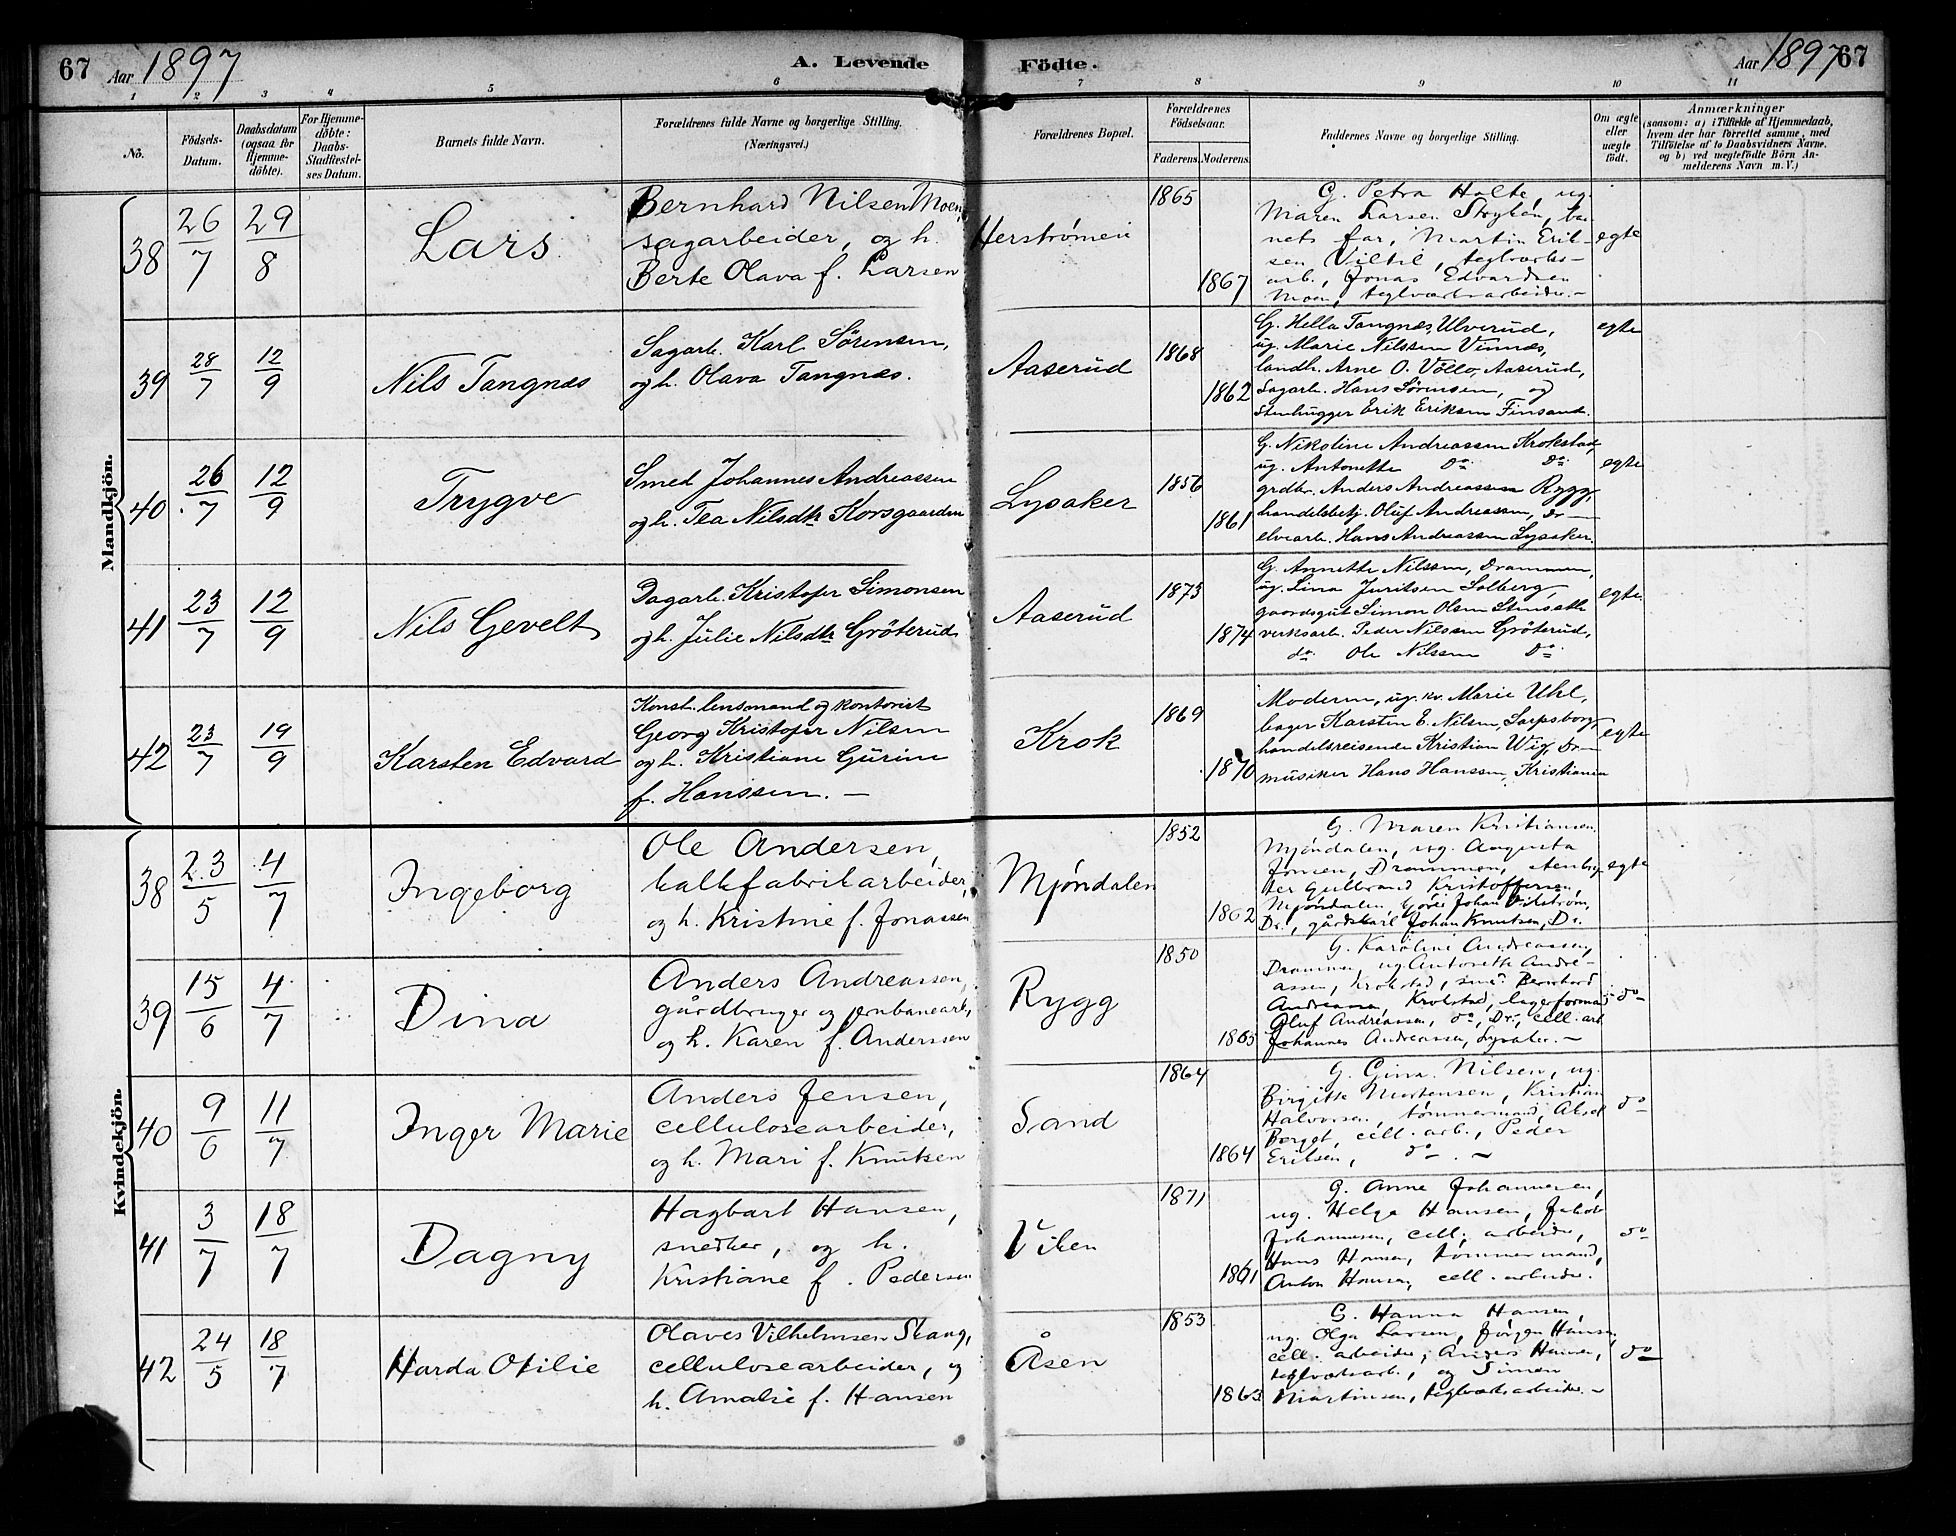 67 Aar 1897 A. Levende Födte. Aar 1897 67
1 2 3 4 5 6 7 8 9 10 11
No. Födsels-Datum. Daabsdatum (ogsaa for Hjemme-döbte). For Hjemme-döbte: Daabs-Stadfæstel-ses Datum. Barnets fulde Navn. Forældrenes fulde Navne og borgerlige Stilling. (Næringsvei.) Forældrenes Bopæl. Forældrenes Födselsaar. Faderens. Moderens. Faddernes Navne og borgerlige Stilling. Om ægte eller uægte födt. Anmærkninger
(saasom: a) i Tilfælde af Hjemmedaab,
hvem der har forrettet samme, med
Tilföielse af to Daabsvidners Navne.
og b) ved uægtefödte Börn An-
melderens Navn m. V.)
Mandkjön.
38 26/7 29/8 Lars
Bernhard Nilsen Moen,
sagarbeider, og h.
Berte Olava f. Larsen
Herstrømen 1865 1867
G. Petra Holte, ug.
Maren Larsen Stryken, bar-
nets far, Martin Erik-
sen Viltil, teglværks-
arb., Jonas Edvardsen
Moen, teglværksarbeider. –
egte
39 28/7 12/9 Nils Tangnæs
Sagarb. Karl Sørensen,
og h. Olava Tangnæs.
Aaserud 1868 1862
G. Hella Tangnæs, Ulverud,
ug. Marie Nilssen Vinnæs,
landh. Arne O. Vollo, Aaserud,
Sagarb. Hans Sørensen, og
Stenhugger Erik Eriksen Finsand.
egte
40 26/7 12/9 Trygve
Smed Johannes Andreassen
og h. Tea Nilsdtr Korsgaarden
Lysaker 1856 1861
G. Nikoline Andreassen Krokstad,
ug. Antonette do do
grdbr. Anders Andreassen Rygg,
handelsbetj. Oluf Andreassen, Dr –
elvearb. Hans Andreassen Lysaker.
egte
41 23/7 12/9 Nils Gevelt
Dagarb. Kristofer Simonsen
og h. Julie Nilsdtr Gröterud
Aaserud 1873 1874
G. Annette Nilssen, Drammen,
ug. Lina Juritsen Solberg,
gaardsgut Simon Olsen Stensæth
verksarb. Peder Nilssen Gröterud,
do Ole Nilssen do
egte
42 23/7 19/9 Karsten Edvard
Konst. lensmand og kontorist
Georg Kristofer Nilsen
og h. Kristiane Gurine
f. Hanssen. –
Krok 1869 1870
Moderen, ug. kv. Marie Uhl,
bager Karsten E. Nilsen, Sarpsborg,
handelsreisende Kristian Wig, Dr –
musiker Hans Hanssen, Kristiania
egte
Kvindekjön.
38 23/5 4/7 Ingeborg
Ole Andersen,
kalkfabrikarbeider,
og h. Kristine f. Jonassen
Mjöndalen 1852 1862
G. Maren Kristiansen,
Mjöndalen, ug. Augusta
Jonsen, Drammen,
Gulbrand Kristoffersen,
Mjöndalen, Johan Vikström,
Dr., gårdskarl Johan Knutsen, Dr.
egte
39 15/6 4/7 Dina
Anders Andreassen,
gårdbruger og jernbanearb.,
og h. Karen f. Anderssen
Rygg 1850 1865
G. Karoline Andreassen,
Drammen, ug Antonette Andre-
assen, Krokstad, smed Bernhard
Andreassen, Krokstad, lagerformand
Oluf Andreassen, do, Dr., cell. arb.
Johannes Andreassen, Lysaker. –
do
40 9/6 11/7 Inger Marie
Anders Jensen,
cellulosearbeider,
og h. Mari f. Knutsen
Sand 1864 1864
G. Gina Nilsen, ug.
Birgitte Mortensen, Kristian
Halvorsen, tømmermand, Aksel
Berget, cell. arb., Peder
Eriksen, do. –
do
41 3/7 18/7 Dagny
Hagbart Hansen,
snedker, og h.
Kristiane f. Pedersen
Viken 1871 1861
G. Anne Johannesen,
ug. Helga Hansen, Jakob
Johannesen, cell. arbeider,
Hans Hansen, tømmermand,
Anton Hansen, cell. arbeider.
do
42 24/5 18/7 Harda Otilie
Olaves Vilhelmsen Skang,
cellulosearbeider, og
h. Amalie f. Hansen
Åsen 1853 1863
G. Hanna Hansen,
ug. Olga Larsen, Jørgen Hansen,
cell. arbeider, Anders Hansen,
teglværksarb., og Simen
Martinsen, teglværksarbeider. –
do